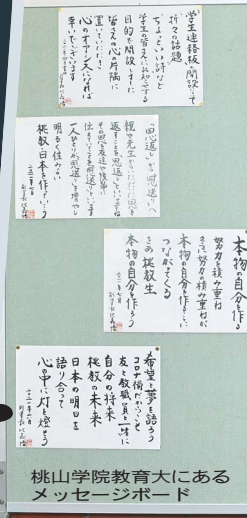 学生連絡板開設して
折々の話題
ちょっといい詩など
学生の皆さんにお知らせする
目的で開設しました
皆さんの心の片隅に
置いていただき
心のオアシスになれば
幸いでございます
「恩返し」から「恩送り」へ
親や先生からいただいた恩を
その恩を友達や後輩に
伝えていくことを恩送りといいます
一人ひとりが恩送りを増やし
明るく住みよい
桃教・日本を作ろう
本物の自分を作る
努力を積み重ね
本物の自分を作ることに
つながってくる
さあ桃教生
本物の自分を作ろう
希望と夢を語ろう
コロナ禍だからこそ
友と教職員と一緒に
自分の将来
桃教の未来
日本の明日を
語り合って
心の中に灯を燈そう
桃山学院教育大にある
メッセージボード